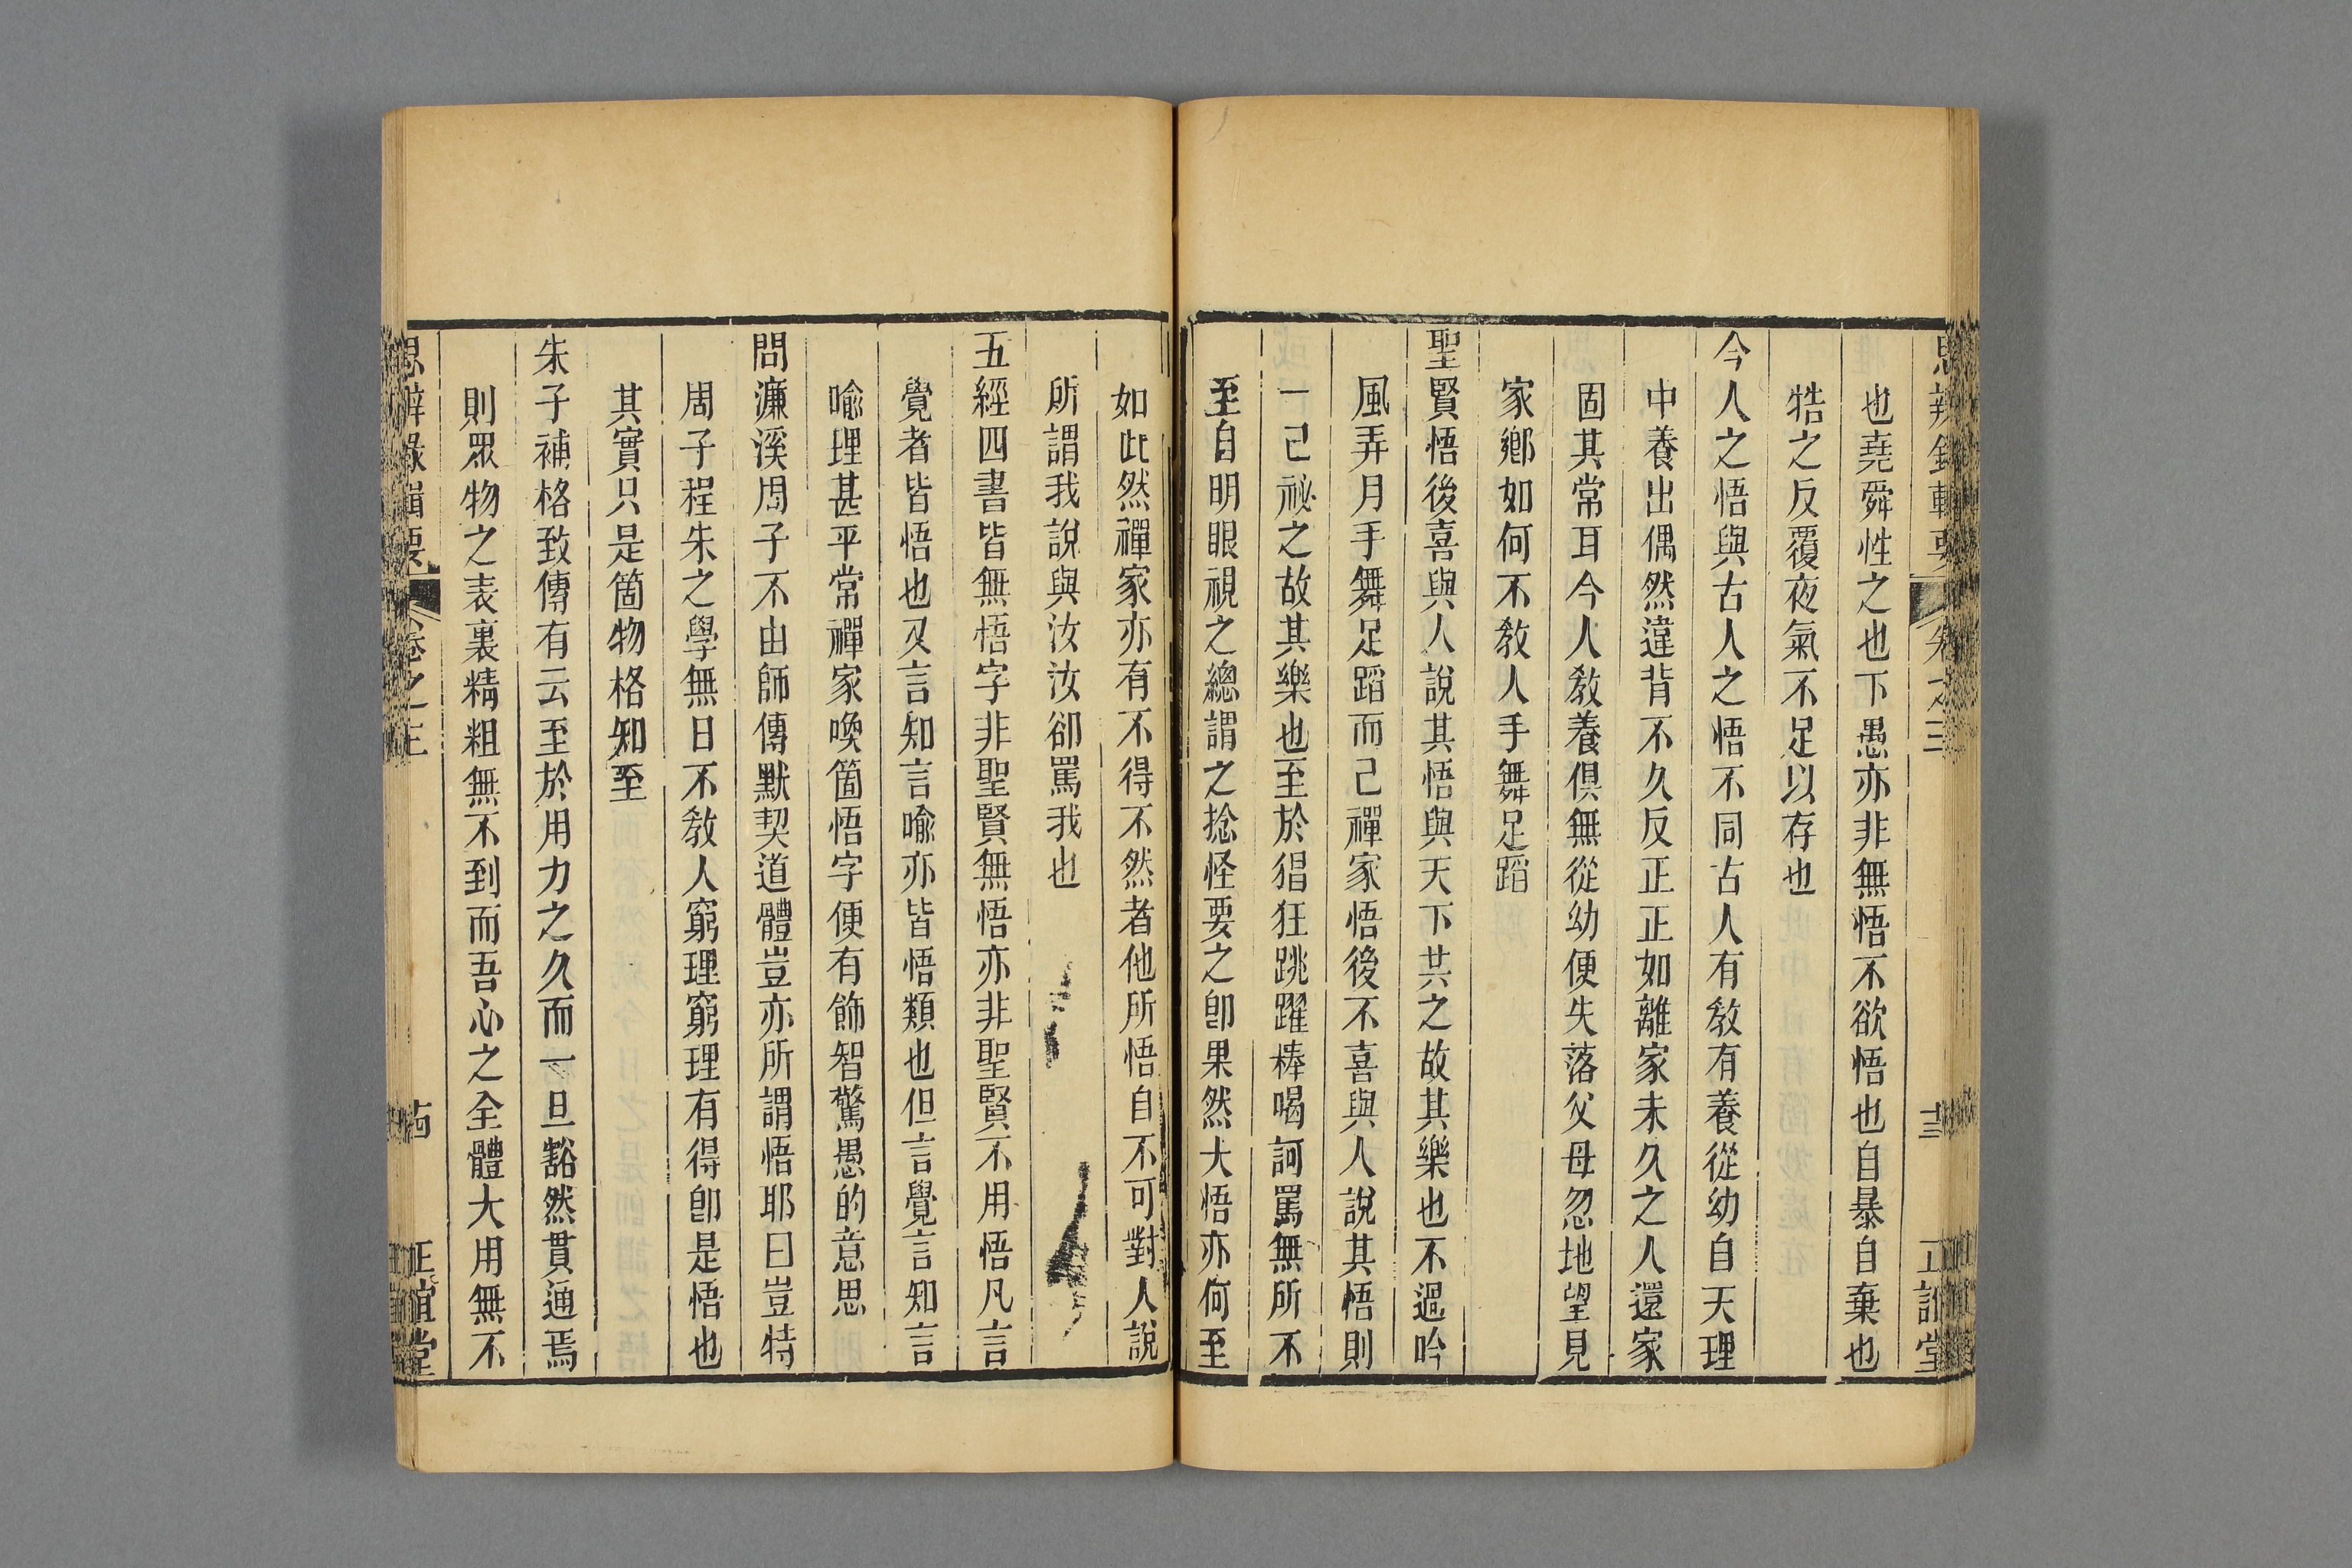 也堯舜性之也下愚亦非無悟不欲悟也自暴自棄也
牿之反覆夜氣不足以存也
今人之悟與古人之悟不同古人有敎有養從幼自天理
中養出偶然違背不久反正正如離家未久之人還家
固其常耳今人敎養俱無從幼便失落父母忽地望見
家鄉如何不敎人手舞足蹈
聖賢悟後喜與人說其悟與天下共之故其樂也不過吟
風弄月手舞足蹈而已禪家悟後不喜與人說其悟則
一己祕之故其樂也至於猖狂跳躍棒喝訶罵無所不
至自明眼視之總謂之捻怪要之卽果然大悟亦何至
如此然禪家亦有不得不然者他所悟自不可對人說
所謂我說與汝汝卻罵我也
五經四書皆無悟字非聖賢無悟亦非聖賢不用悟凡言
覺者皆悟也又言知言喻亦皆悟類也但言覺言知言
喻理甚平常禪家喚箇悟字便有飾智驚愚的意思
問濂溪周子不由師傳默契道體豈亦所謂悟耶曰豈特
周子程朱之學無日不敎人窮理窮理有得卽是悟也
其實只是箇物格知至
朱子補格致傳有云至於用力之久而一旦豁然貫通焉
則眾物之表裏精粗無不到而吾心之全體大用無不
思辨錄輯要 卷之三 十四 正誼堂